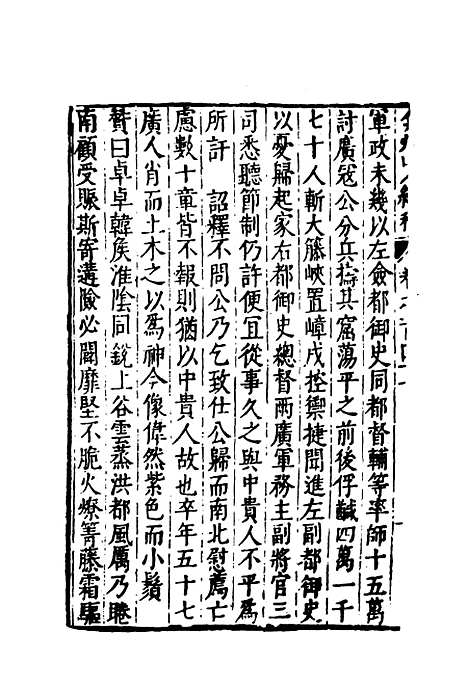 軍政未幾以左僉都御史同都督輔等率師十五萬
討廣寇公分兵擣其窟蕩平之前後俘馘四萬一千
七十人斬大籐峽置嶂戍控禦捷聞進左副都御史
以憂歸起家右都御史總督兩廣軍務主副將官三
司悉聽節制仍許便宜從事久之與中貴人不平爲
所訐 詔釋不問公乃乞致仕公歸而南北慰薦亡
慮數十章皆不報則猶以中貴人故也卒年五十七
廣人肖而土木之以爲神今像偉然紫色而小鬚
贊曰卓卓韓矦淮陰同銳上谷雲蒸洪都風厲乃睠
南顧受賑斯寄遘險必闘靡堅不脆火燎箐藤霜驅